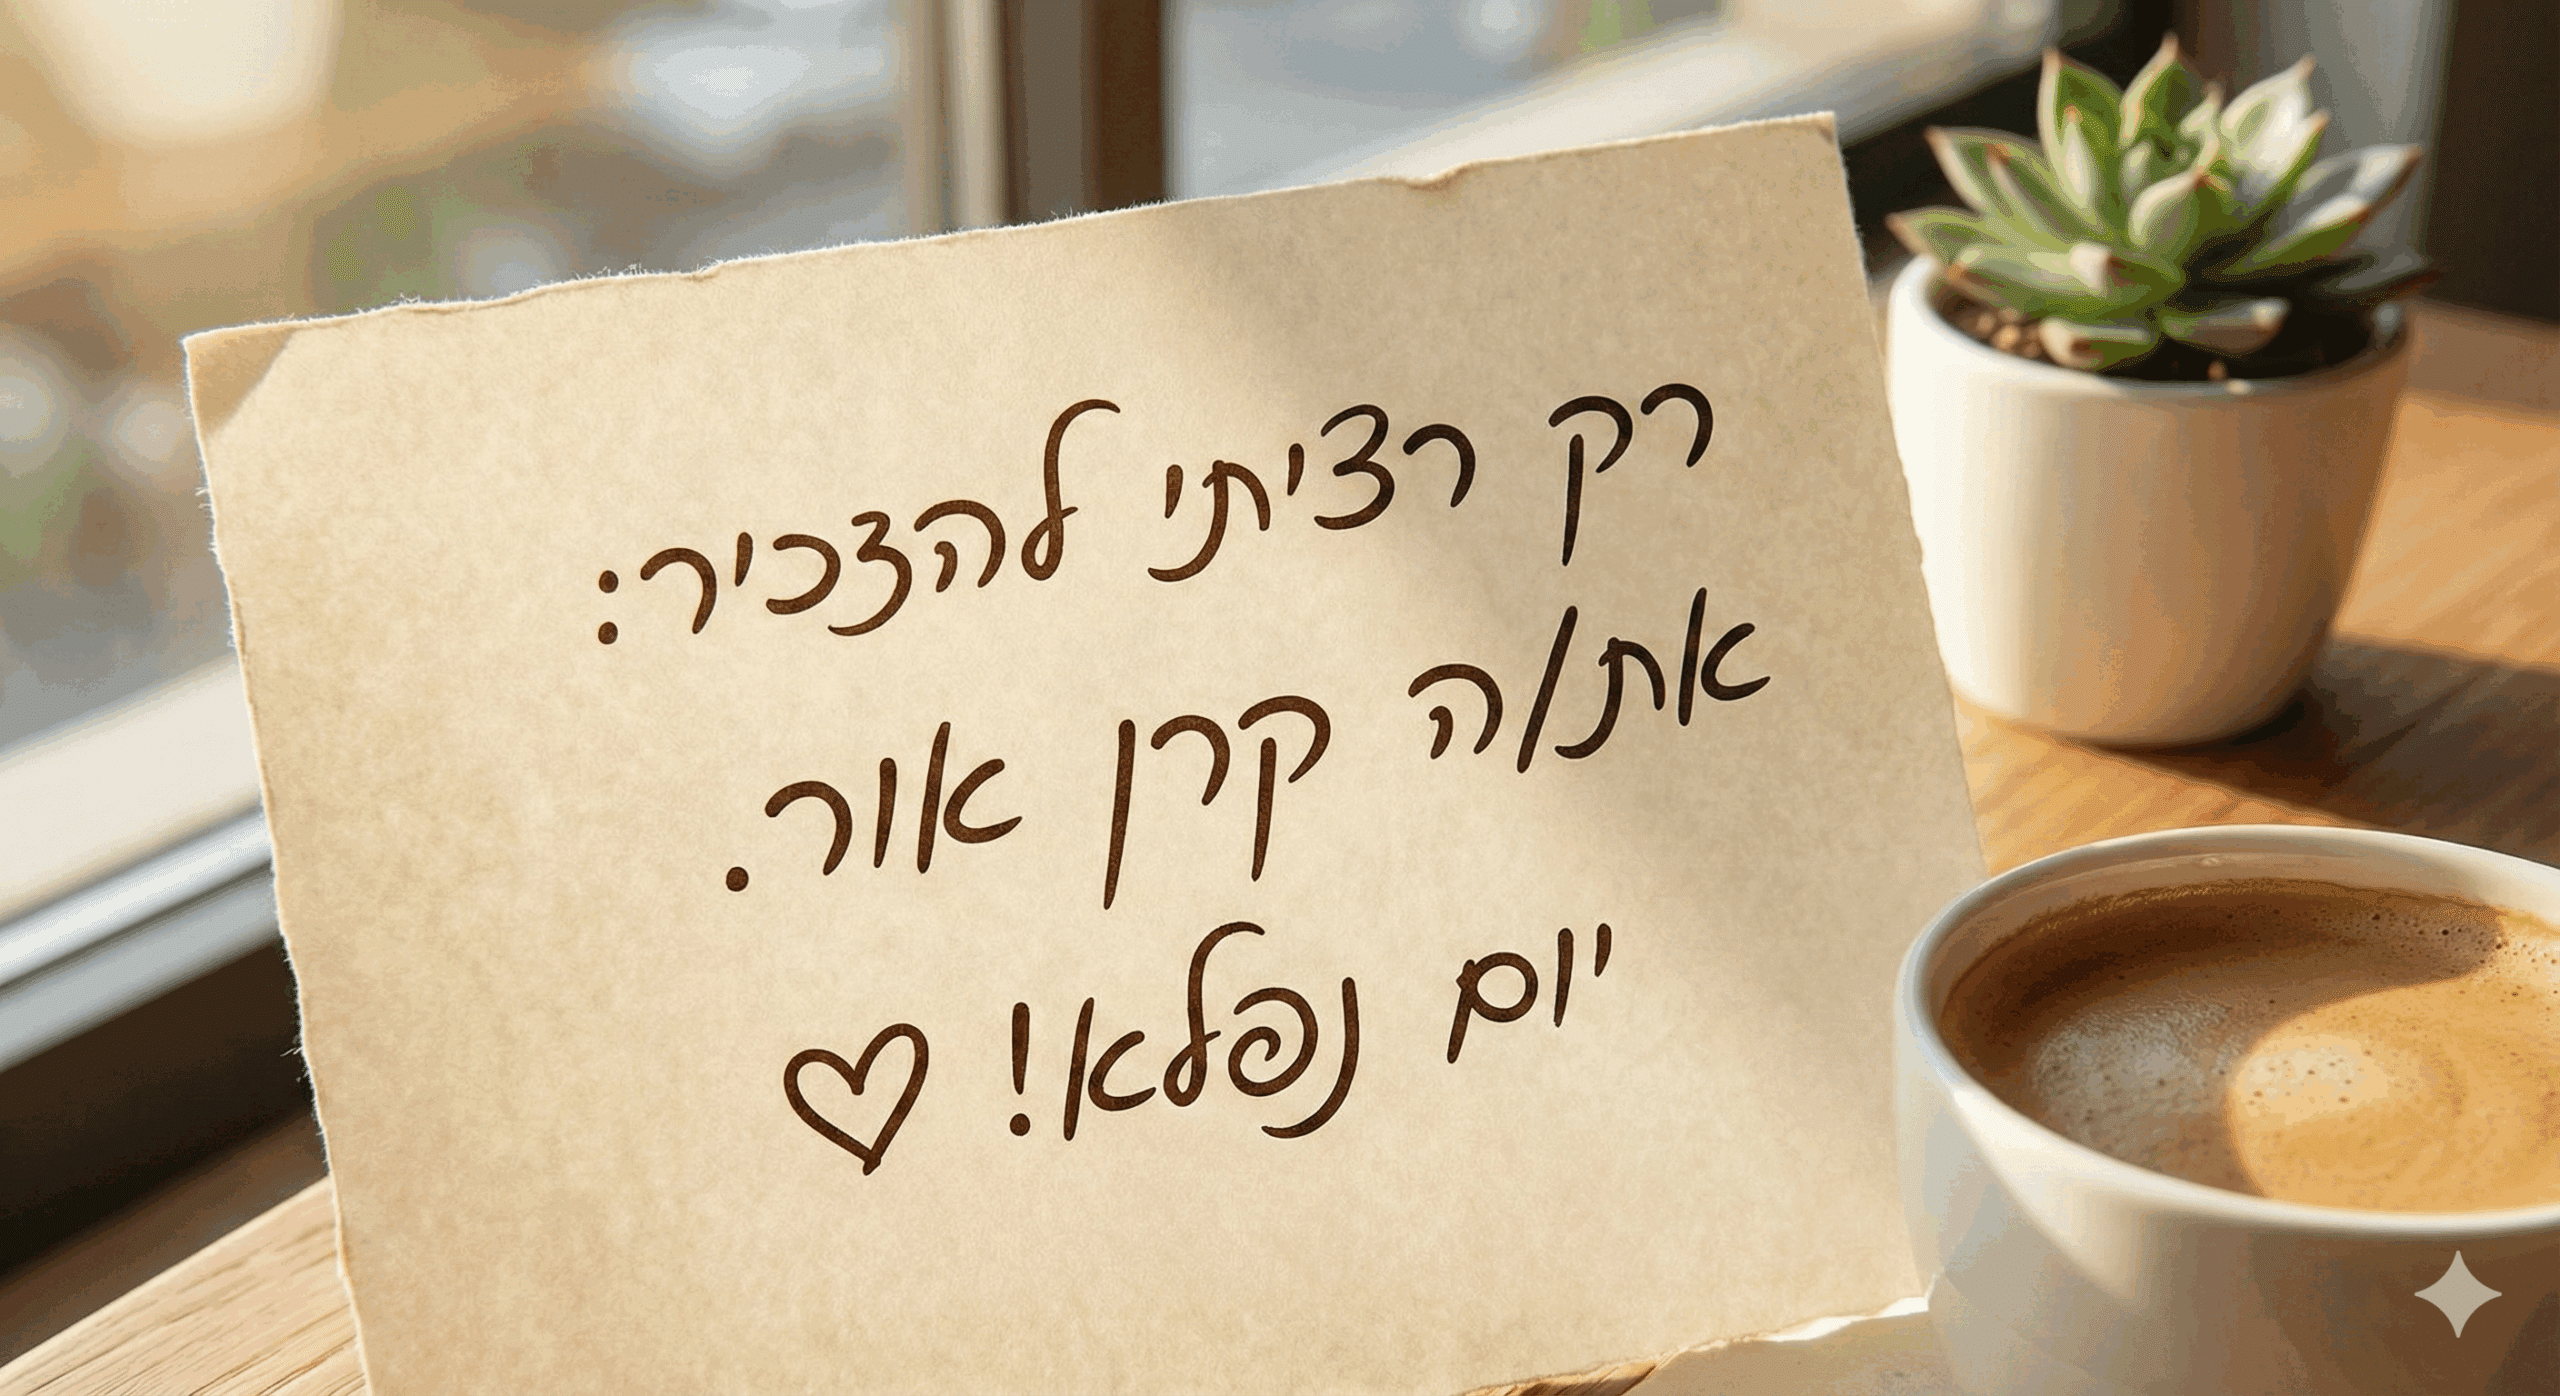 רק רציתי להזכיר:
את/ה קרן אור.
יום נפלא! ♡